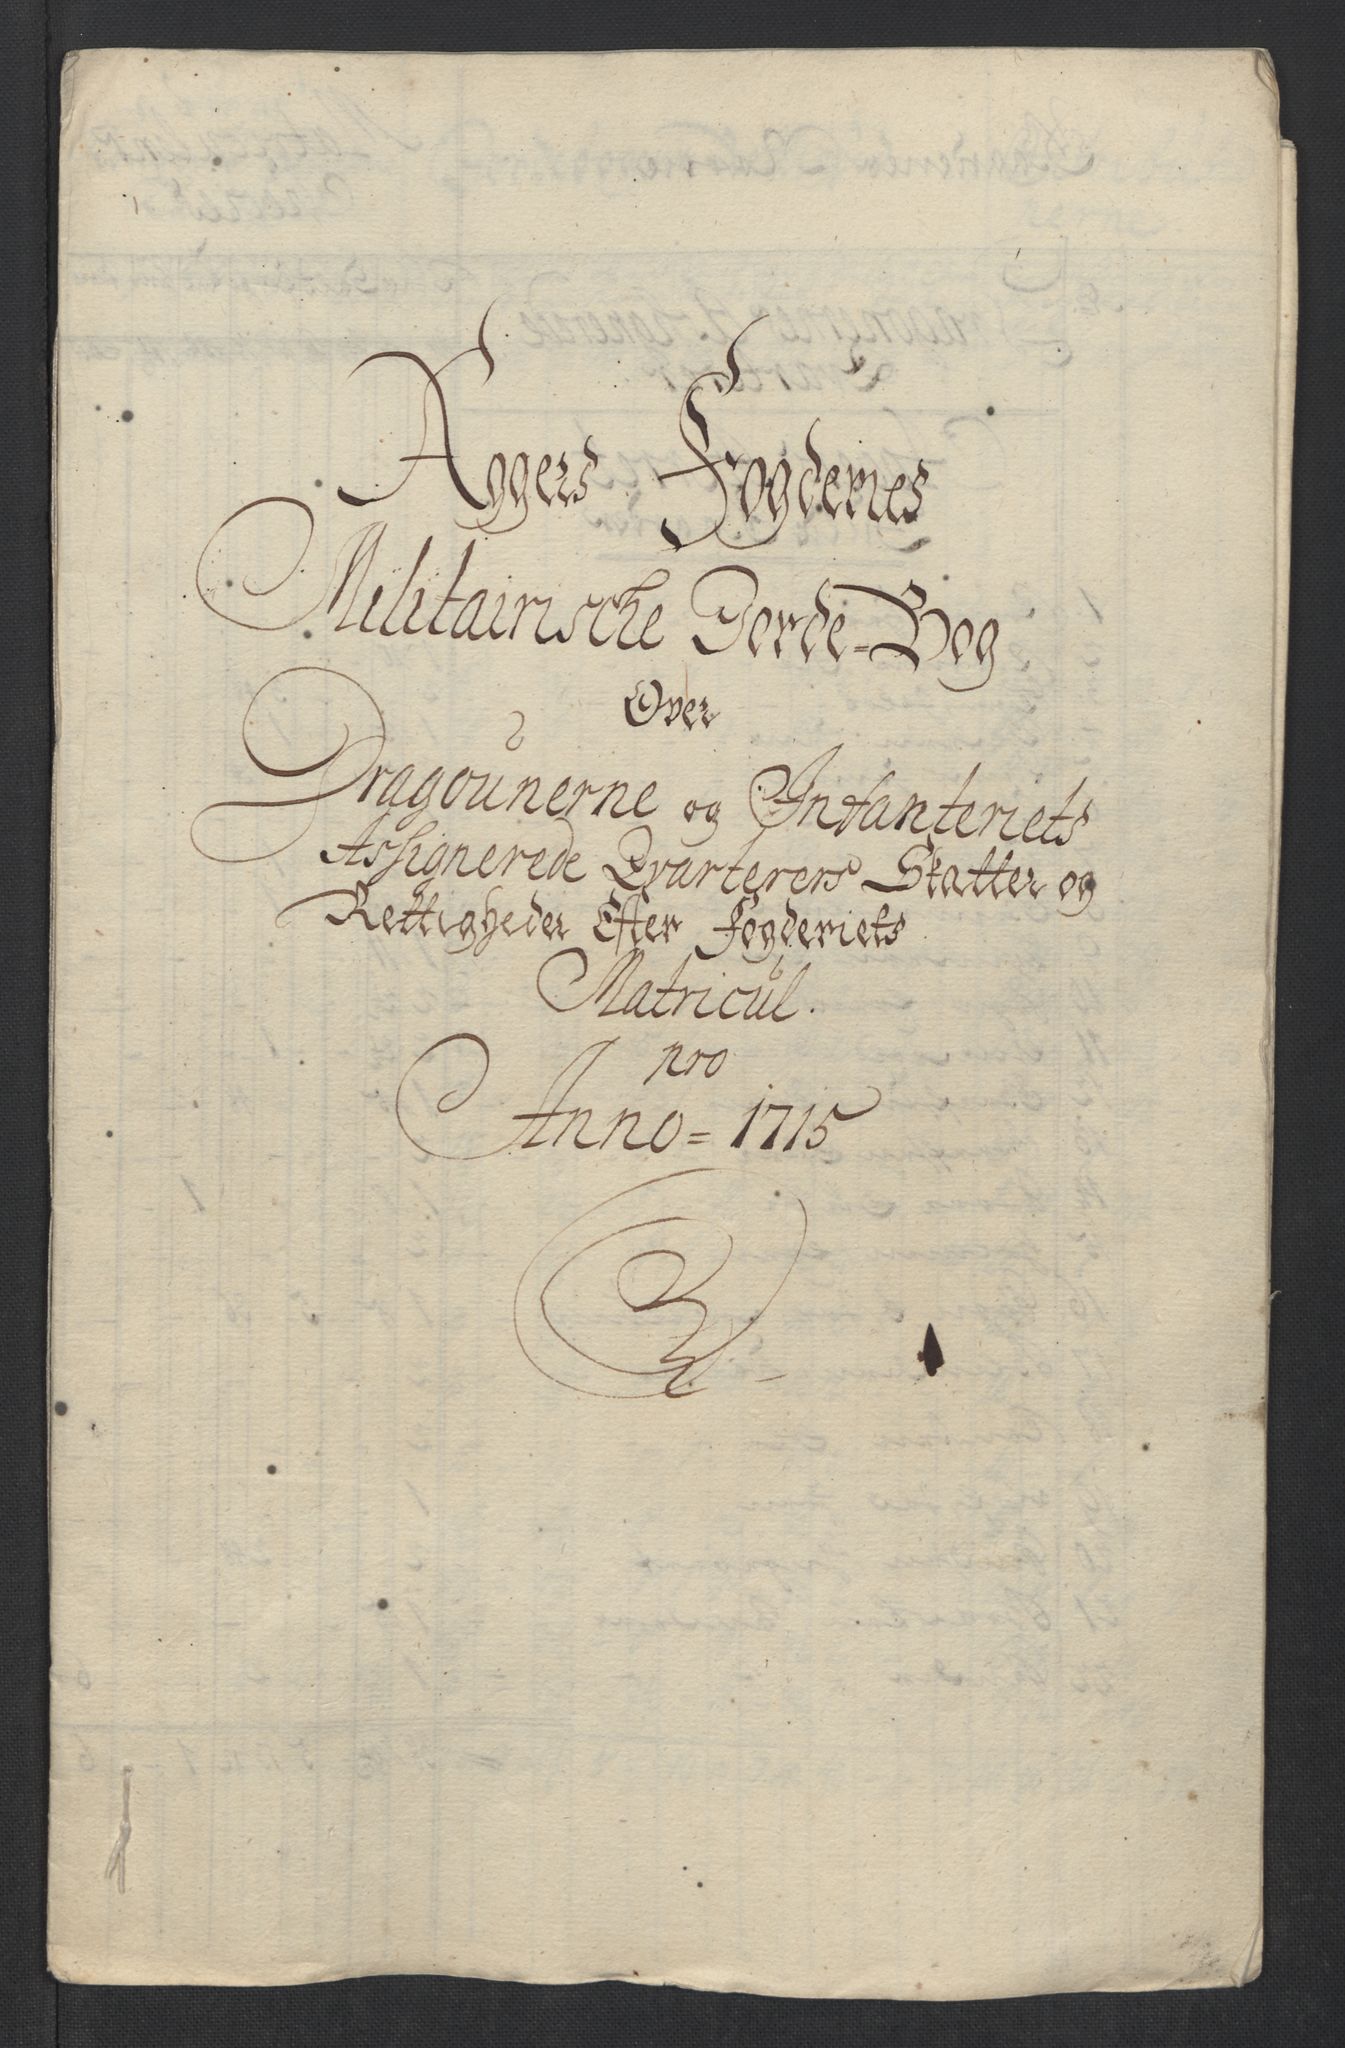 Aggers Fogderies
Militairische Jorde=Bog
Over
Dragounerne og Infanteriets
Assignerede Qvarterers Skatter og
Rettigheder Efter Fogderiets
Matricul.
pro
Anno = 1715